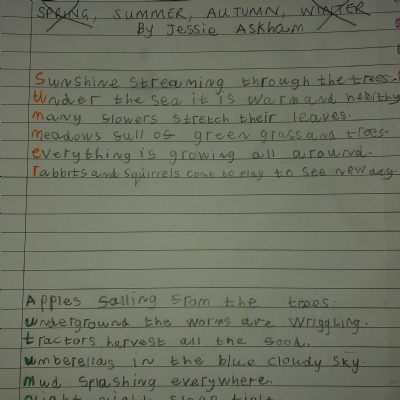 SPRING, SUMMER, AUTUMN, WINTER
By Jessie Askham
Sunshine streaming through the trees.
Under the sea it is warm and healthy
many flowers stretch their leaves.
meadows full of green grass and trees.
everything is growing all around.
rabbits and squirrels come to play to see new day.
Apples falling from the trees.
underground the worms are wriggling.
tractors harvest all the food.
umberellas in the blue cloudy sky.
mud splashing everywhere.
night night sleep tight